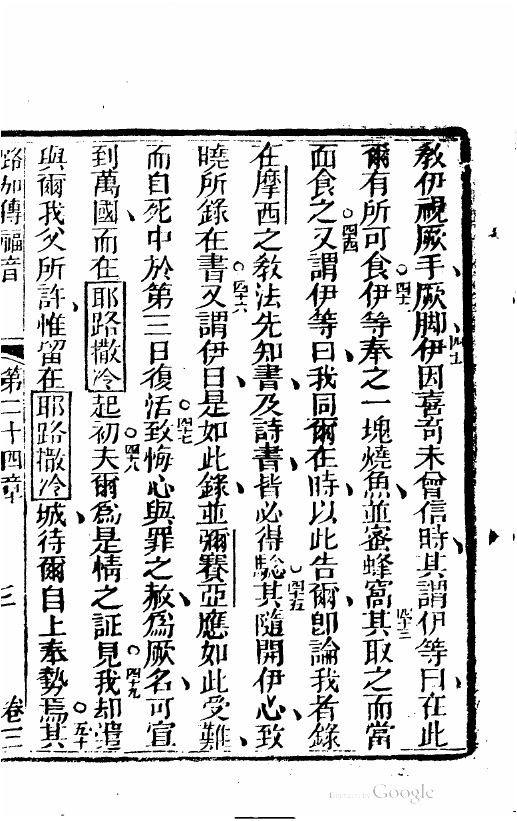 教伊視厥手、厥脚、四十一伊因喜奇未曾信時、其謂伊等曰、在此
爾有所可食。四十二伊等奉之一塊燒魚並蜜蜂窩、四十三其取之而當
面食之。四十四又謂伊等曰、我同爾在時、以此告爾、卽論我者錄
在摩西之教法先知書、及詩書、皆必得騐。四十五其隨開伊心、致
曉所錄在書。四十六又謂伊曰、是如此錄、並彌賽亞應如此受難、
而自死中於第三日復活。四十七致悔心與罪之赦、爲厥名、可宣
到萬國、而在耶路撒冷起初。四十八夫爾爲是情之証見。四十九我却遣
與爾我父所許、惟留在耶路撒冷城、待爾自上奉勢焉。五十其
路加傳福音 第二十四章 三 卷三
Digitized by Google